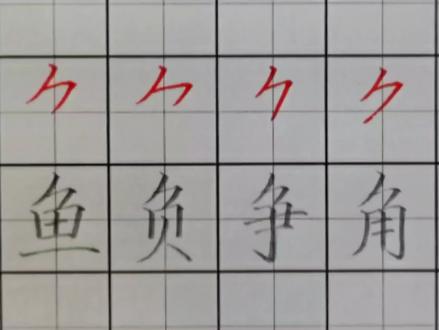 ⺈ ⺈ ⺈ ⺈
鱼 负 争 角